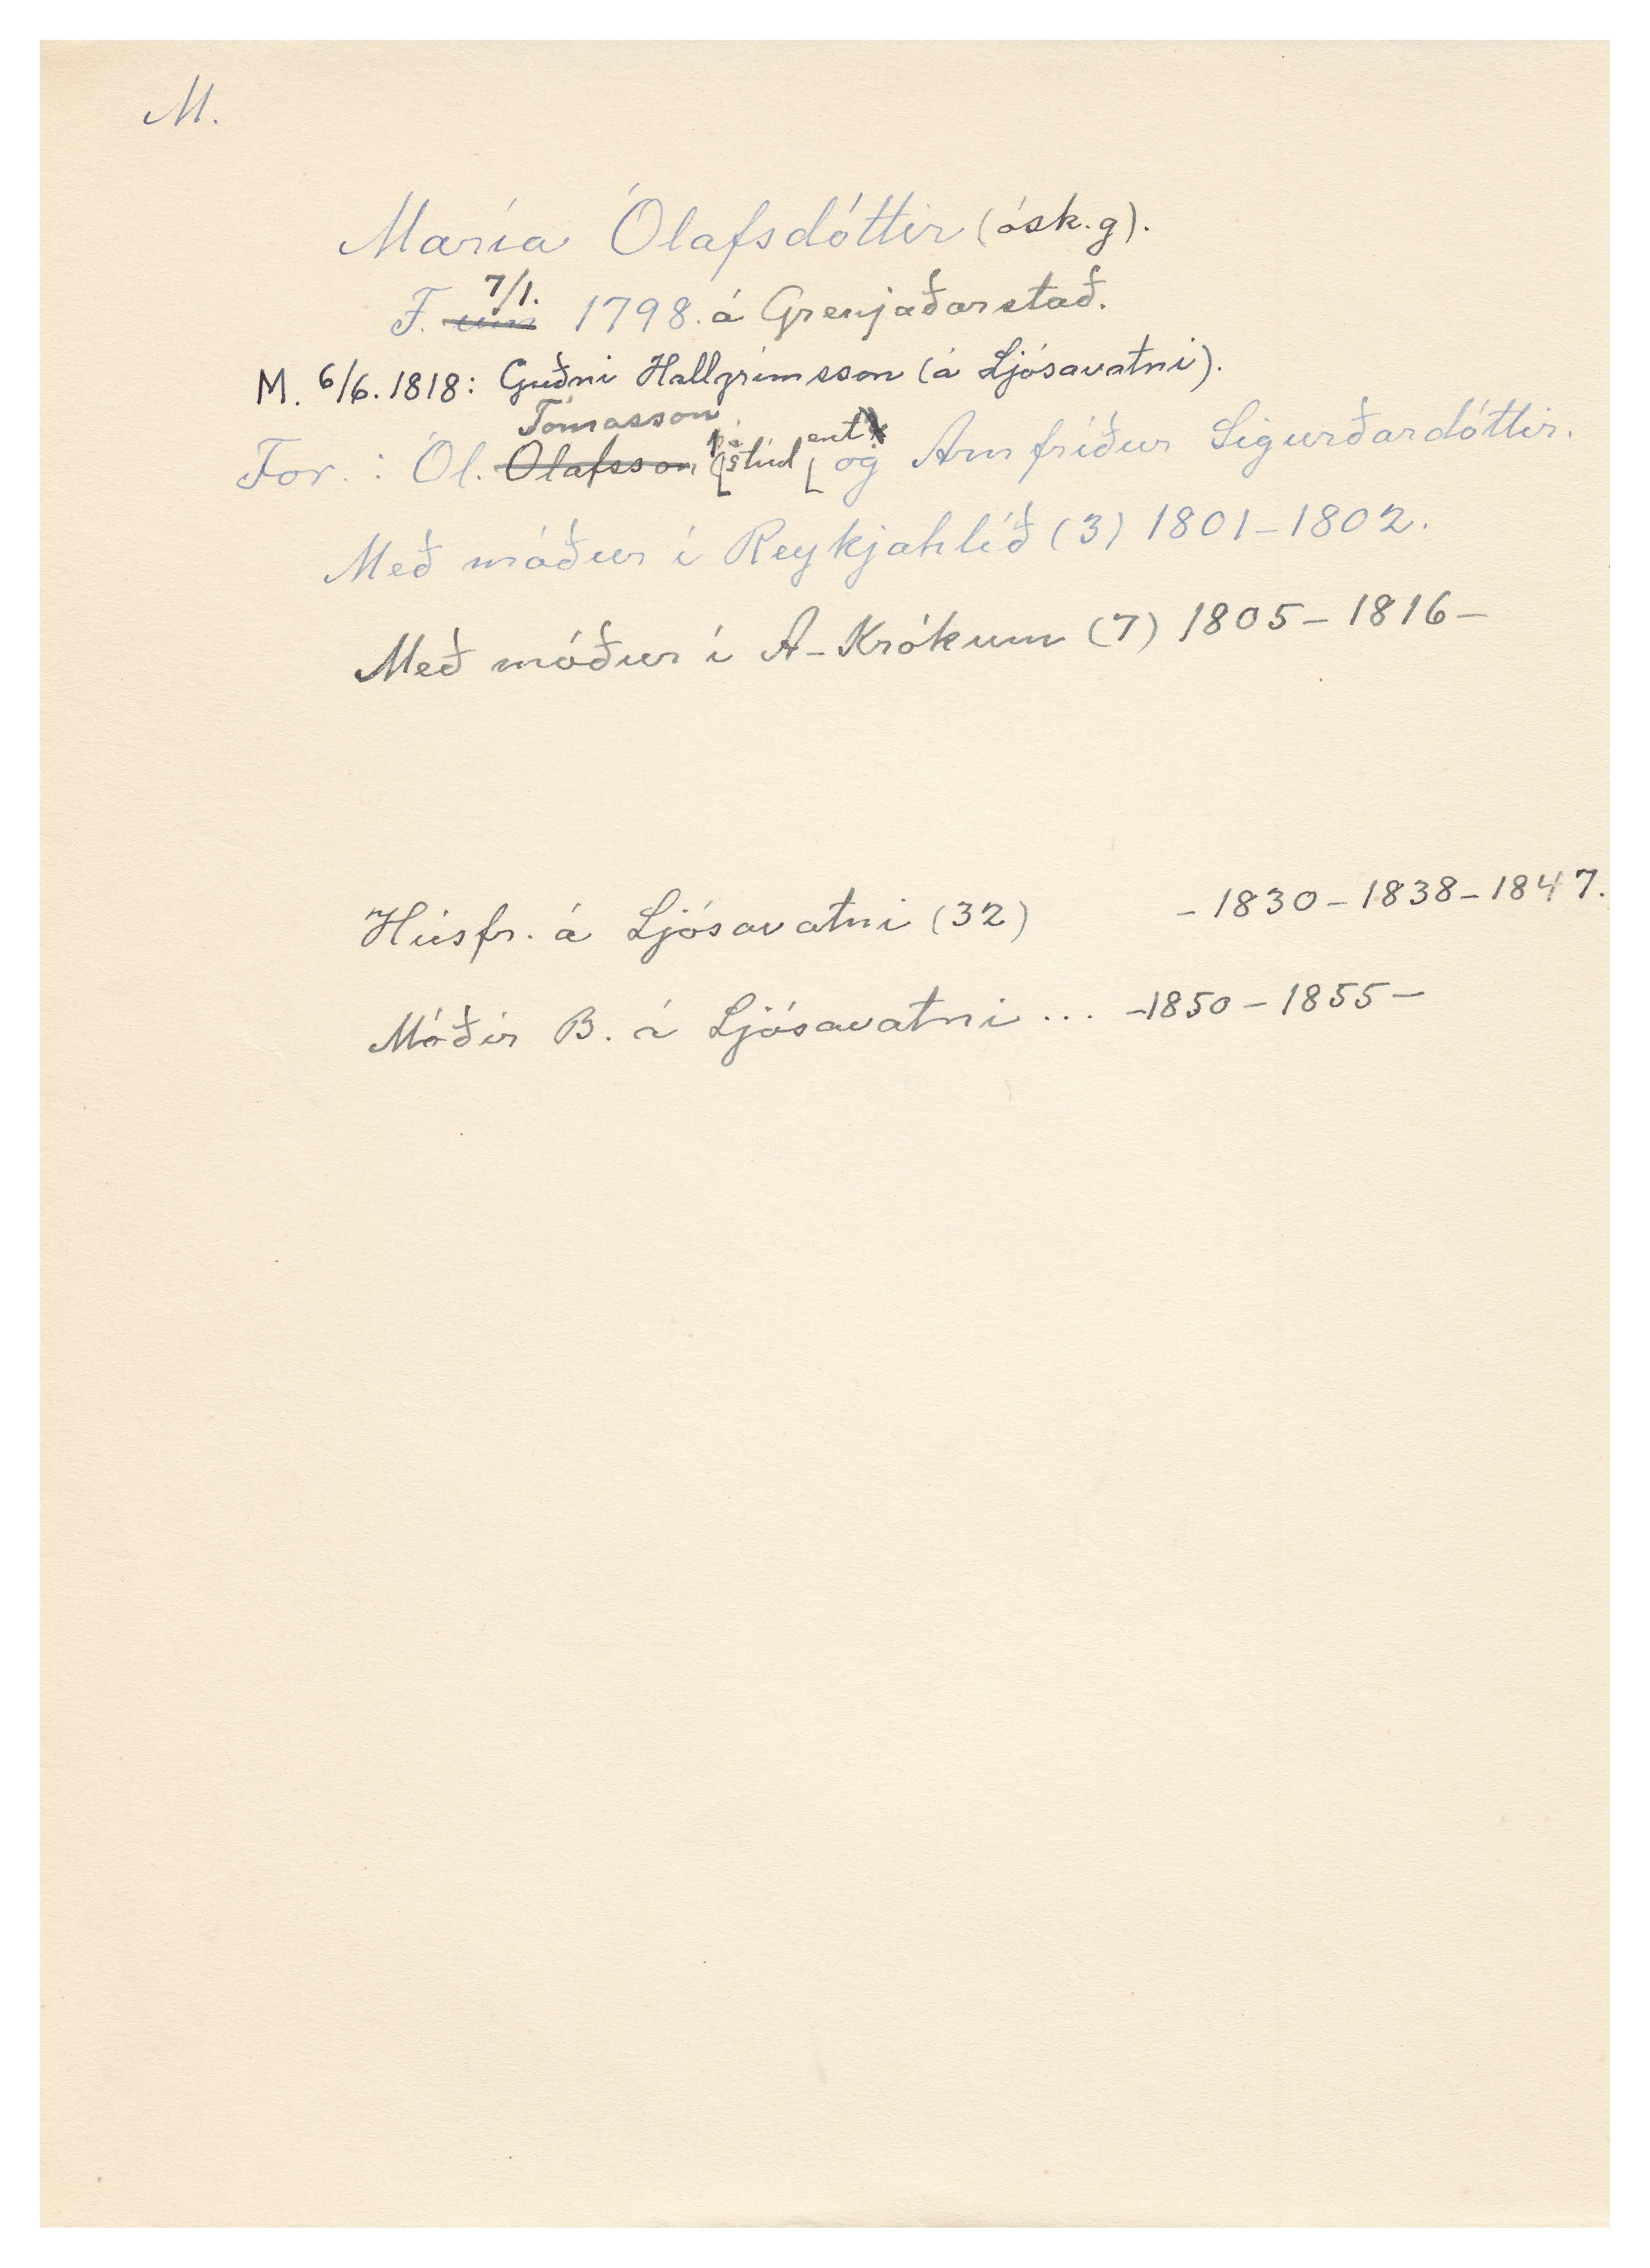 M.
María Ólafsdóttir (ósk.g).
F. 7/1. 1798. á Grenjaðarstað.
M. 6/6. 1818: Guðni Hallgrímsson (á Ljósavatni).
Tómasson
For. : Ól. Olafsson (stúdent) og Arnfríður Sigurðardóttir.
Með móður í Reykjahlíð (3) 1801–1802.
Með móður í A-Krókum (7) 1805–1816–
Húsfr. á Ljósavatni (32) –1830–1838–1847.
Móðir B. á Ljósavatni ... –1850–1855–